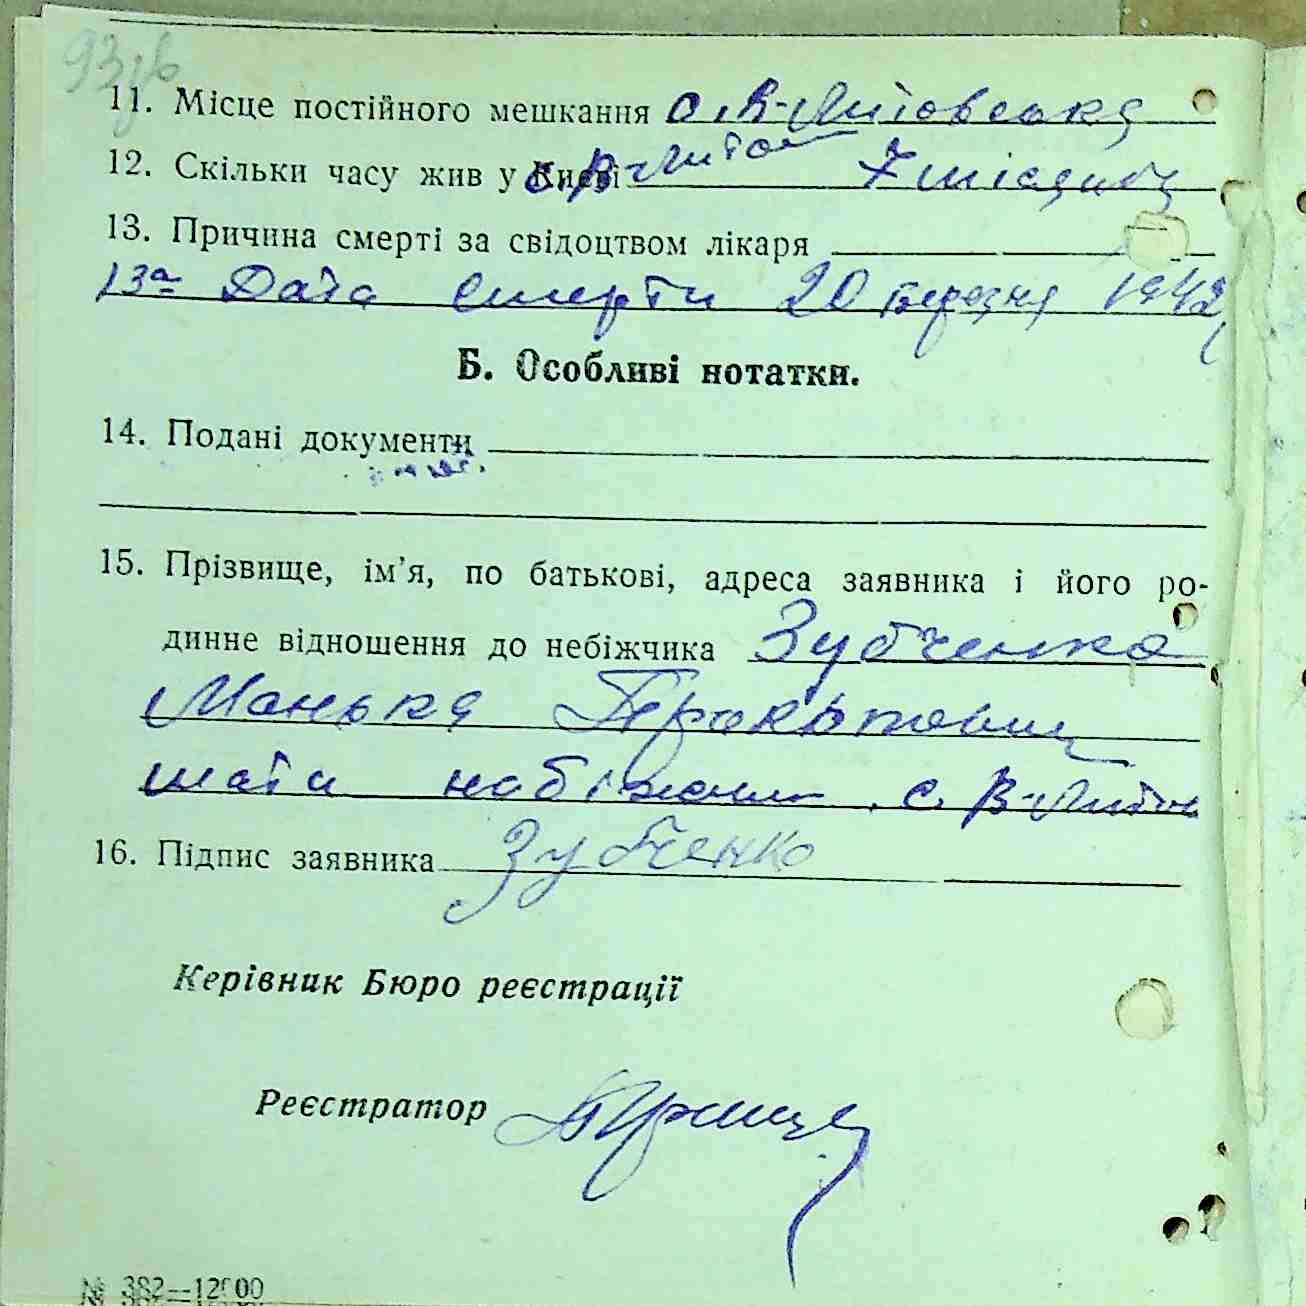 93зв
11. Місце постійного мешкання с. В-Литовська
12. Скільки часу жив у Києві с. В-Литов 7 місяців
13. Причина смерті за свідоцтвом лікаря
13а Дата смерти 20 березня 1942
Б. Особливі нотатки.
14. Подані документи
15. Прізвище, ім’я, по батькові, адреса заявника і його ро-
динне відношення до небіжчика Зубченко
Манька
мати с. В-Литов
16. Підпис заявника Зубченко
Керівник Бюро реєстрації
Реєстратор
№ 382—12000